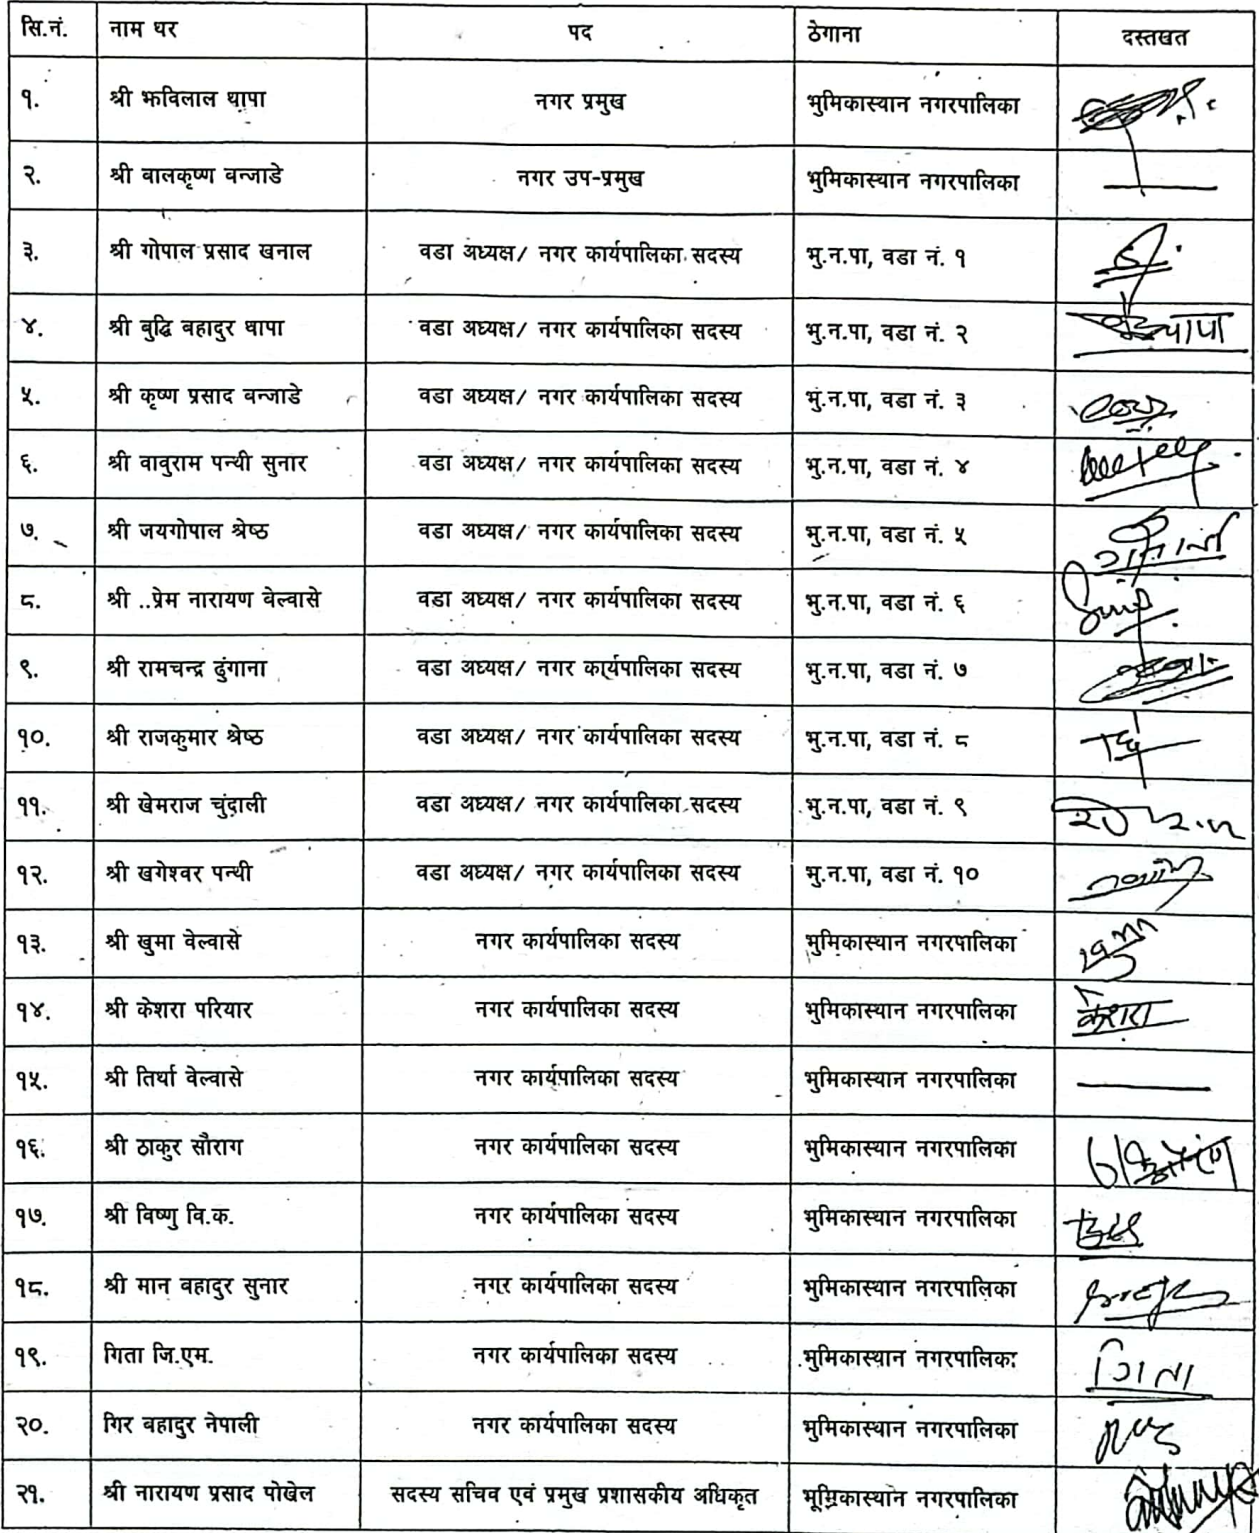 सि.नं. नाम थर पद ठेगाना दस्तखत
१. श्री झविलाल थापा नगर प्रमुख भुमिकास्थान नगरपालिका
२. श्री वालकृष्ण वन्जाडे नगर उप-प्रमुख भुमिकास्थान नगरपालिका
३. श्री गोपाल प्रसाद खनाल वडा अध्यक्ष/ नगर कार्यपालिका सदस्य भु.न.पा, वडा नं. १
४. श्री बुद्धि बहादुर थापा वडा अध्यक्ष/ नगर कार्यपालिका सदस्य भु.न.पा, वडा नं. २ थापा
५. श्री कृष्ण प्रसाद वन्जाडे वडा अध्यक्ष/ नगर कार्यपालिका सदस्य भु.न.पा, वडा नं. ३
६. श्री वावुराम पन्थी सुनार वडा अध्यक्ष/ नगर कार्यपालिका सदस्य भु.न.पा, वडा नं. ४
७. श्री जयगोपाल श्रेष्ठ वडा अध्यक्ष/ नगर कार्यपालिका सदस्य भु.न.पा, वडा नं. ५
८. श्री ..प्रेम नारायण वेल्वासे वडा अध्यक्ष/ नगर कार्यपालिका सदस्य भु.न.पा, वडा नं. ६
९. श्री रामचन्द्र ढुंगाना वडा अध्यक्ष/ नगर कार्यपालिका सदस्य भु.न.पा, वडा नं. ७
१०. श्री राजकुमार श्रेष्ठ वडा अध्यक्ष/ नगर कार्यपालिका सदस्य भु.न.पा, वडा नं. ८
११. श्री खेमराज चुंदाली वडा अध्यक्ष/ नगर कार्यपालिका सदस्य भु.न.पा, वडा नं. ९
१२. श्री खगेश्वर पन्थी वडा अध्यक्ष/ नगर कार्यपालिका सदस्य भु.न.पा, वडा नं. १०
१३. श्री खुमा वेल्वासे नगर कार्यपालिका सदस्य भुमिकास्थान नगरपालिका खुमा
१४. श्री केशरा परियार नगर कार्यपालिका सदस्य भुमिकास्थान नगरपालिका केशरा
१५. श्री तिर्था वेल्वासे नगर कार्यपालिका सदस्य भुमिकास्थान नगरपालिका
१६. श्री ठाकुर सौराग नगर कार्यपालिका सदस्य भुमिकास्थान नगरपालिका
१७. श्री विष्णु वि.क. नगर कार्यपालिका सदस्य भुमिकास्थान नगरपालिका
१८. श्री मान बहादुर सुनार नगर कार्यपालिका सदस्य भुमिकास्थान नगरपालिका
१९. गिता जि.एम. नगर कार्यपालिका सदस्य भुमिकास्थान नगरपालिका गिता
२०. गिर बहादुर नेपाली नगर कार्यपालिका सदस्य भुमिकास्थान नगरपालिका
२१. श्री नारायण प्रसाद पोखेल सदस्य सचिव एवं प्रमुख प्रशासकीय अधिकृत भूमिकास्थान नगरपालिका